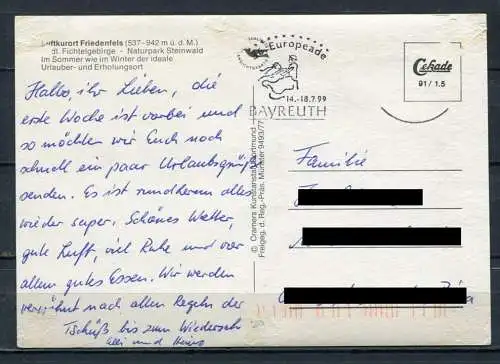 Luftkurort Friedenfels (537-942 m ü. d. M.)
dl. Fichtelgebirge - Naturpark Steinwald
Im Sommer wie im Winter der ideale
Urlauber- und Erholungsort
Hallo, ihr Lieben, die
erste Woche ist vorbei und
so möchten wir Euch noch
schnell ein paar Urlaubsgrüße
senden. Es ist rundherum alles
wieder super. Schönes Wetter,
gute Luft, viel Ruhe und vor
allem gutes Essen. Wir werden
verwöhnt nach allen Regeln der
Tschüß bis zum Wiederseh
und
© Cramers Kunstanstalt Dortmund
Freigeg. d. Reg.-Präs. Münster 9493/77
Europeade
14.-18.7.99
BAYREUTH
Cekade
91/1.5
Familie